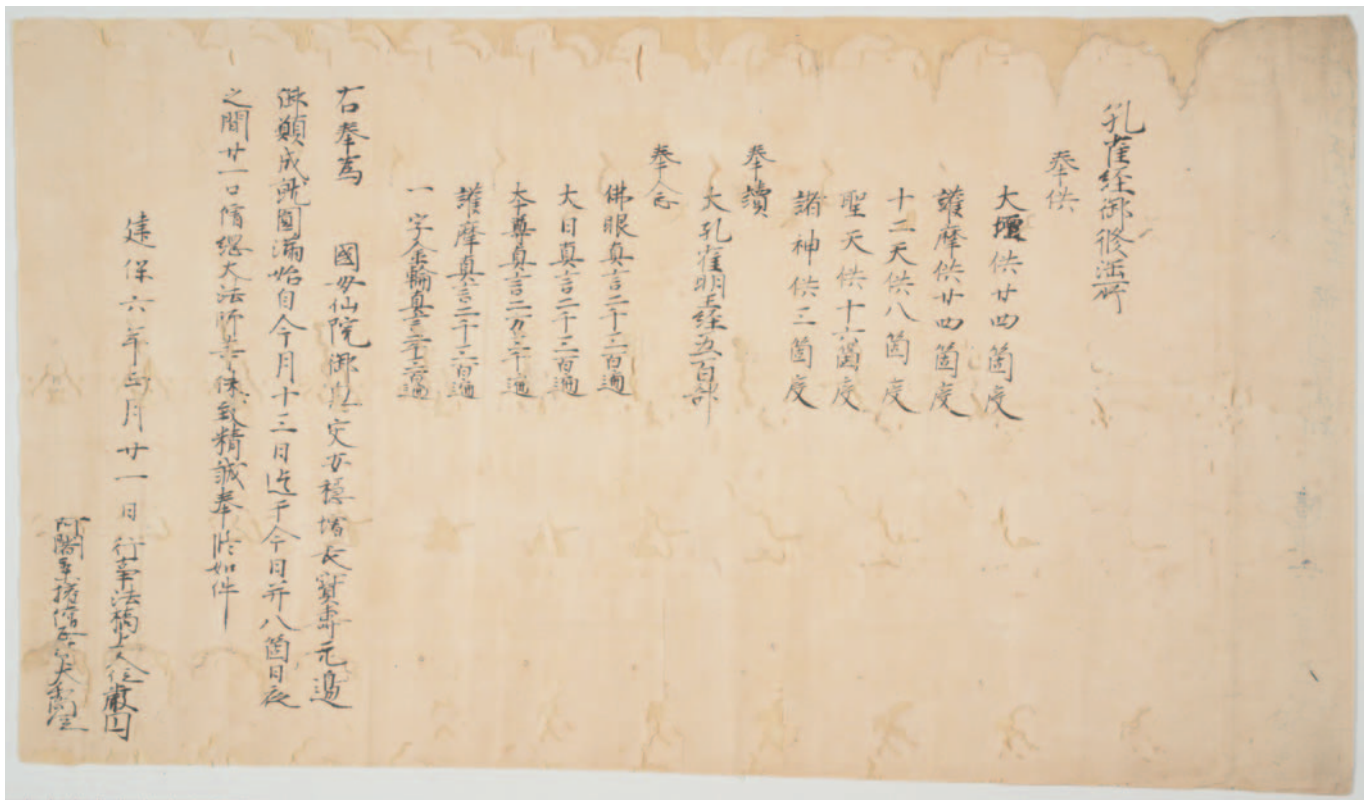 孔雀経御修法所
奉供
大壇供廿四箇度
護摩供廿四箇度
十二天供八箇度
聖天供十六箇度
諸神供三箇度
奉讀
大孔雀明王経五百部
奉念
佛眼真言二千三百遍
大日真言二千三百遍
本尊真言二万三千遍
護摩真言二千三百遍
一字金輪真言二千三百遍
右奉為 國母仙院御息災安穏増長寳壽无邊
御願成就圓満始自今月十三日迄于今日并八箇日夜
之間廿一口僧綱大法師等 殊致精誠奉修如件
建保六年 月廿一日行事法橋上人位嚴
阿闍梨 僧正 大和尚位